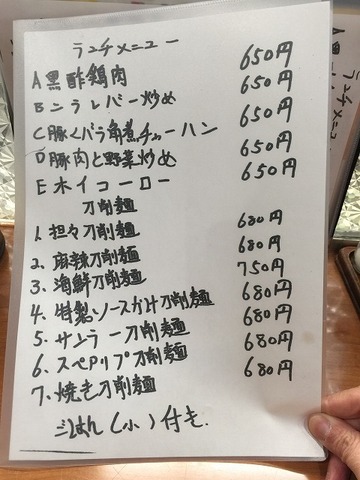 ランチメニュー
A黒酢鶏肉 650円
Bニラレバー炒め 650円
C豚バラ角煮チャーハン 650円
D豚肉と野菜炒め 650円
Eホイコーロー 650円
刀削麺
1.担々刀削麺 680円
2.麻辣刀削麺 680円
3.海鮮刀削麺 750円
4.特製ソースかけ刀削麺 680円
5.サンラー刀削麺 680円
6.スペアリブ刀削麺 680円
7.焼き刀削麺 680円
ごはん(小)付き.
ランチメニュー
A黒